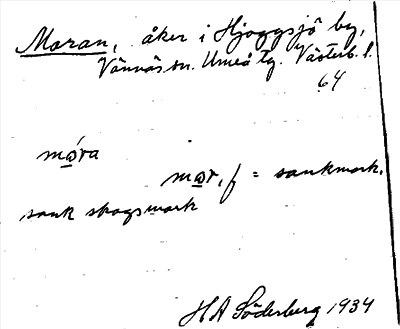 Maran, åker i Hjoggsjö by,
Vännäs sn. Umeå tg. Västerb. l.
64
måra
mår, f = sankmark,
sank skogsmark
H A Söderberg 1934